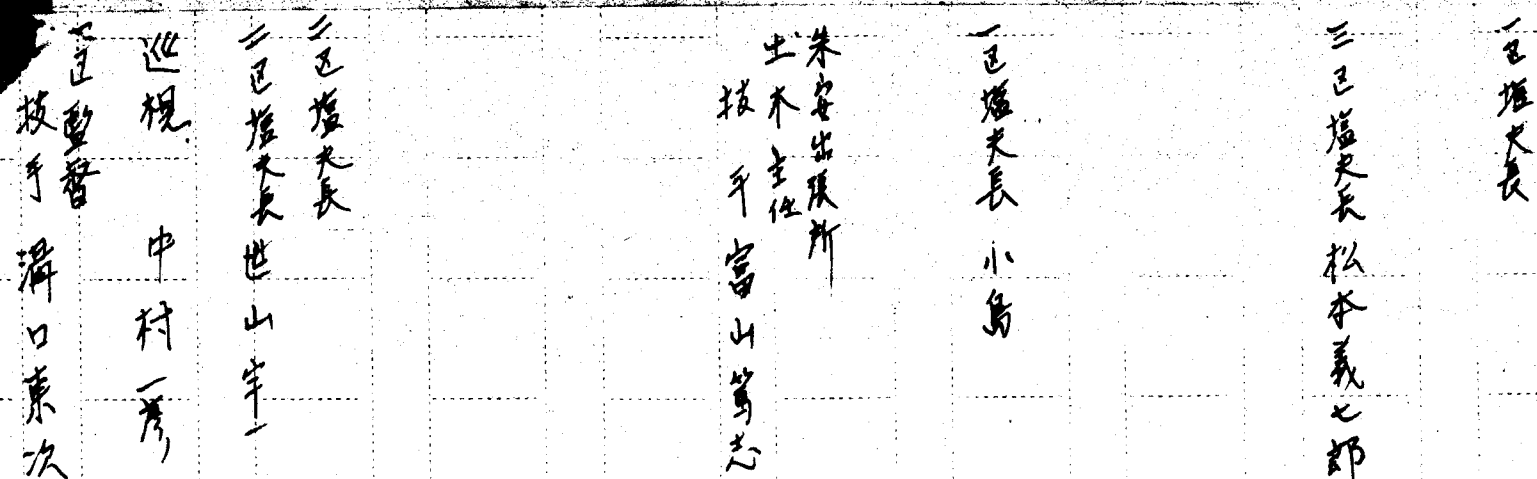 一区塩夫長
三区塩夫長 松本義七郎
一区塩夫長 小島
朱安出張所
土木主任
技手 富山篤志
二区塩夫長
二区塩夫長 世山宰一
巡視 中村一彦
一区監督
技手 溝口東次